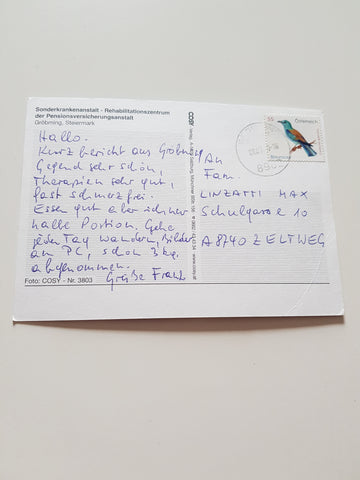 Sonderkrankenanstalt - Rehabilitationszentrum
der Pensionsversicherungsanstalt
Gröbming, Steiermark
Hallo.
Kurzbericht aus Gröbming
Gegend sehr schön,
Therapien sehr gut,
fast schmerzfrei.
Essen gut aber immer
halbe Portion. Gehe
jeden Tag wandern, Bilder
am PC, schon 3 kg.
abgenommen.
Grüße Franz
Foto: COSY - Nr. 3803
COSY
55
Österreich
An
Fam.
LINZATTI MAX
Schulgasse 10
A 8740 ZELTWEG